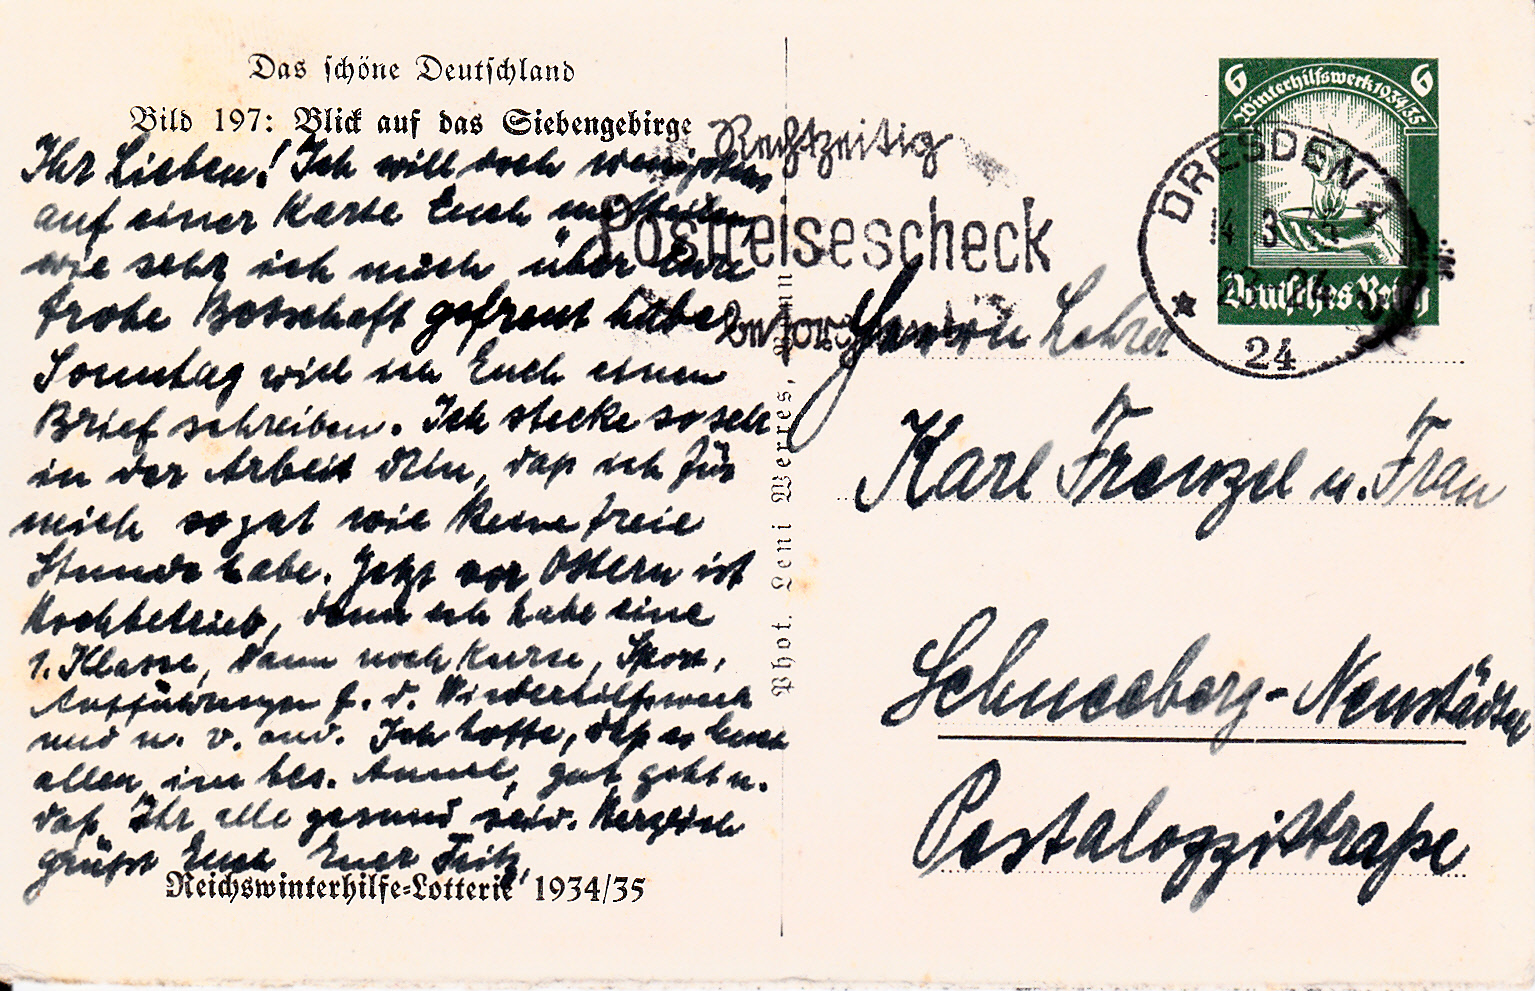 Das schöne Deutschland
Bild 197: Blick auf das Siebengebirge
Ihr Lieben! Ich will doch wenigstens
auf einer Karte Euch mitteilen
wie sehr ich mich über Eure
frohe Botschaft gefreut habe
Sonntag wird ich Euch einen
Brief schreiben. Ich stecke so sehr
in der Arbeit drin, daß ich für
mich so gut wie keine freie
Stunde habe. Jetzt vor Ostern ist
Hochbetrieb, denn ich habe eine
1. Klasse, dann noch Kurse, Sport,
Aufführungen f. d. Winterhilfswerk
und u. v. and. Ich hoffe, daß es Euch
allen, im bes. gut geht u.
daß Ihr alle gesund seid. Herzlich
grüßt Euch Euer Fritz,
Reichswinterhilfe-Lotterie 1934/35
Phot. Leni Werres, Bonn
Rechtzeitig
Postreisescheck
besorgen
6 Winterhilfswerk 1934/35 6
Deutsches Reich
DRESDEN A
24
Herrn Lehrer
Karl Frenzel u. Frau
Schneeberg-Neustädtel
Pestalozzistraße